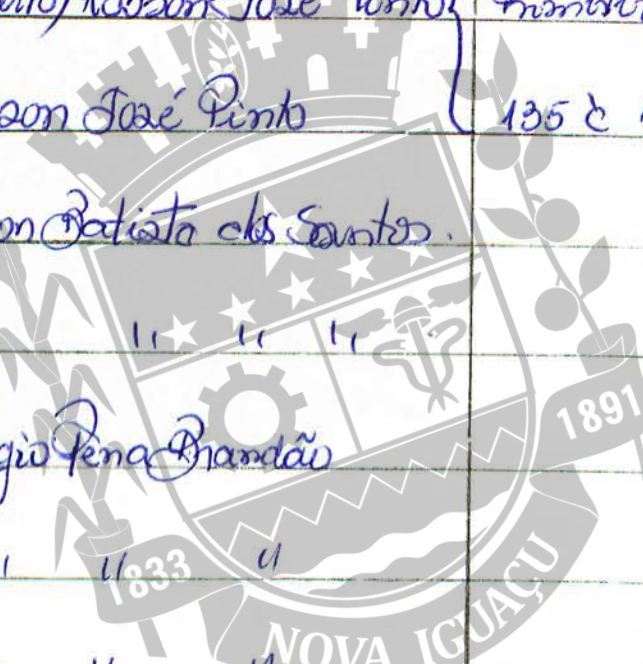 José
son José Pinto 135
on Batista dos Santos.
" " "
gio Pena Brandão
" " "
" "
1891
1833
NOVA IGUAÇU